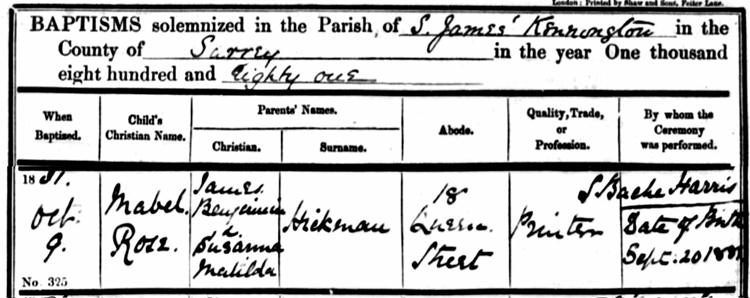 London: Printed by Shaw and Sons, Fetter Lane.
BAPTISMS solemnized in the Parish of S. James' Kennington in the
County of Surrey in the year One thousand
eight hundred and eighty one
When Baptised. Child's Christian Name. Parents' Names. Abode. Quality, Trade, or Profession. By whom the Ceremony was performed.
Christian. Surname.
1881.
Oct
9.
No. 325
Mabel
Rose.
James
Benjamin
&
Susanna
Matilda
Hickman
18
Queen
Street
Printer
S Bache Harris
Date of Birth
Sept. 20 1881